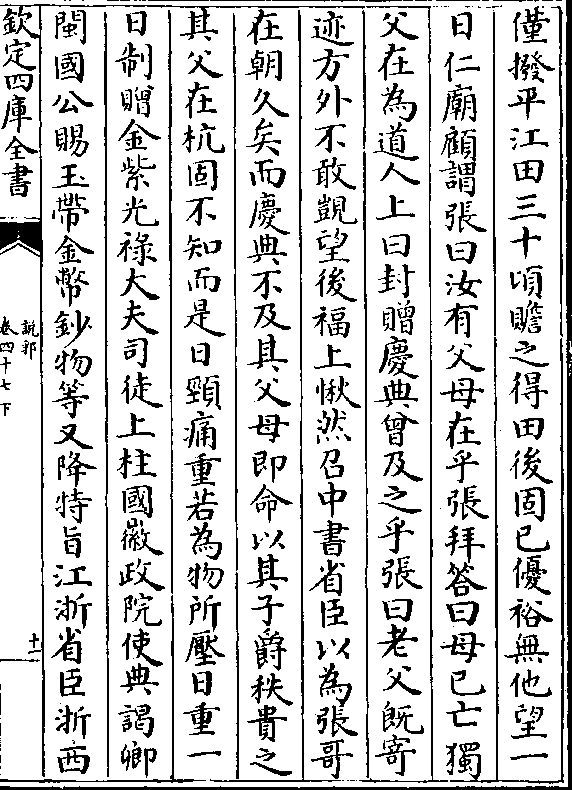 僅撥平江田三十頃贍之得田後固已優裕無他望一
日仁廟顧謂張曰汝有父母在乎張拜答曰母已亡獨
父在為道人上曰封贈慶典曾及之乎張曰老父旣寄
迹方外不敢覬望後福上愀然召中書省臣以為張哥
在朝久矣而慶典不及其父母即命以其子爵秩貴之
其父在杭固不知而是日頸痛重若為物所壓日重一
日制贈金紫光祿大夫司徒上柱國徽政院使典謁卿
閩國公賜玉帶金幣鈔物等又降特旨江浙省臣浙西
欽定四庫全書
說郛
卷四十七下
十二